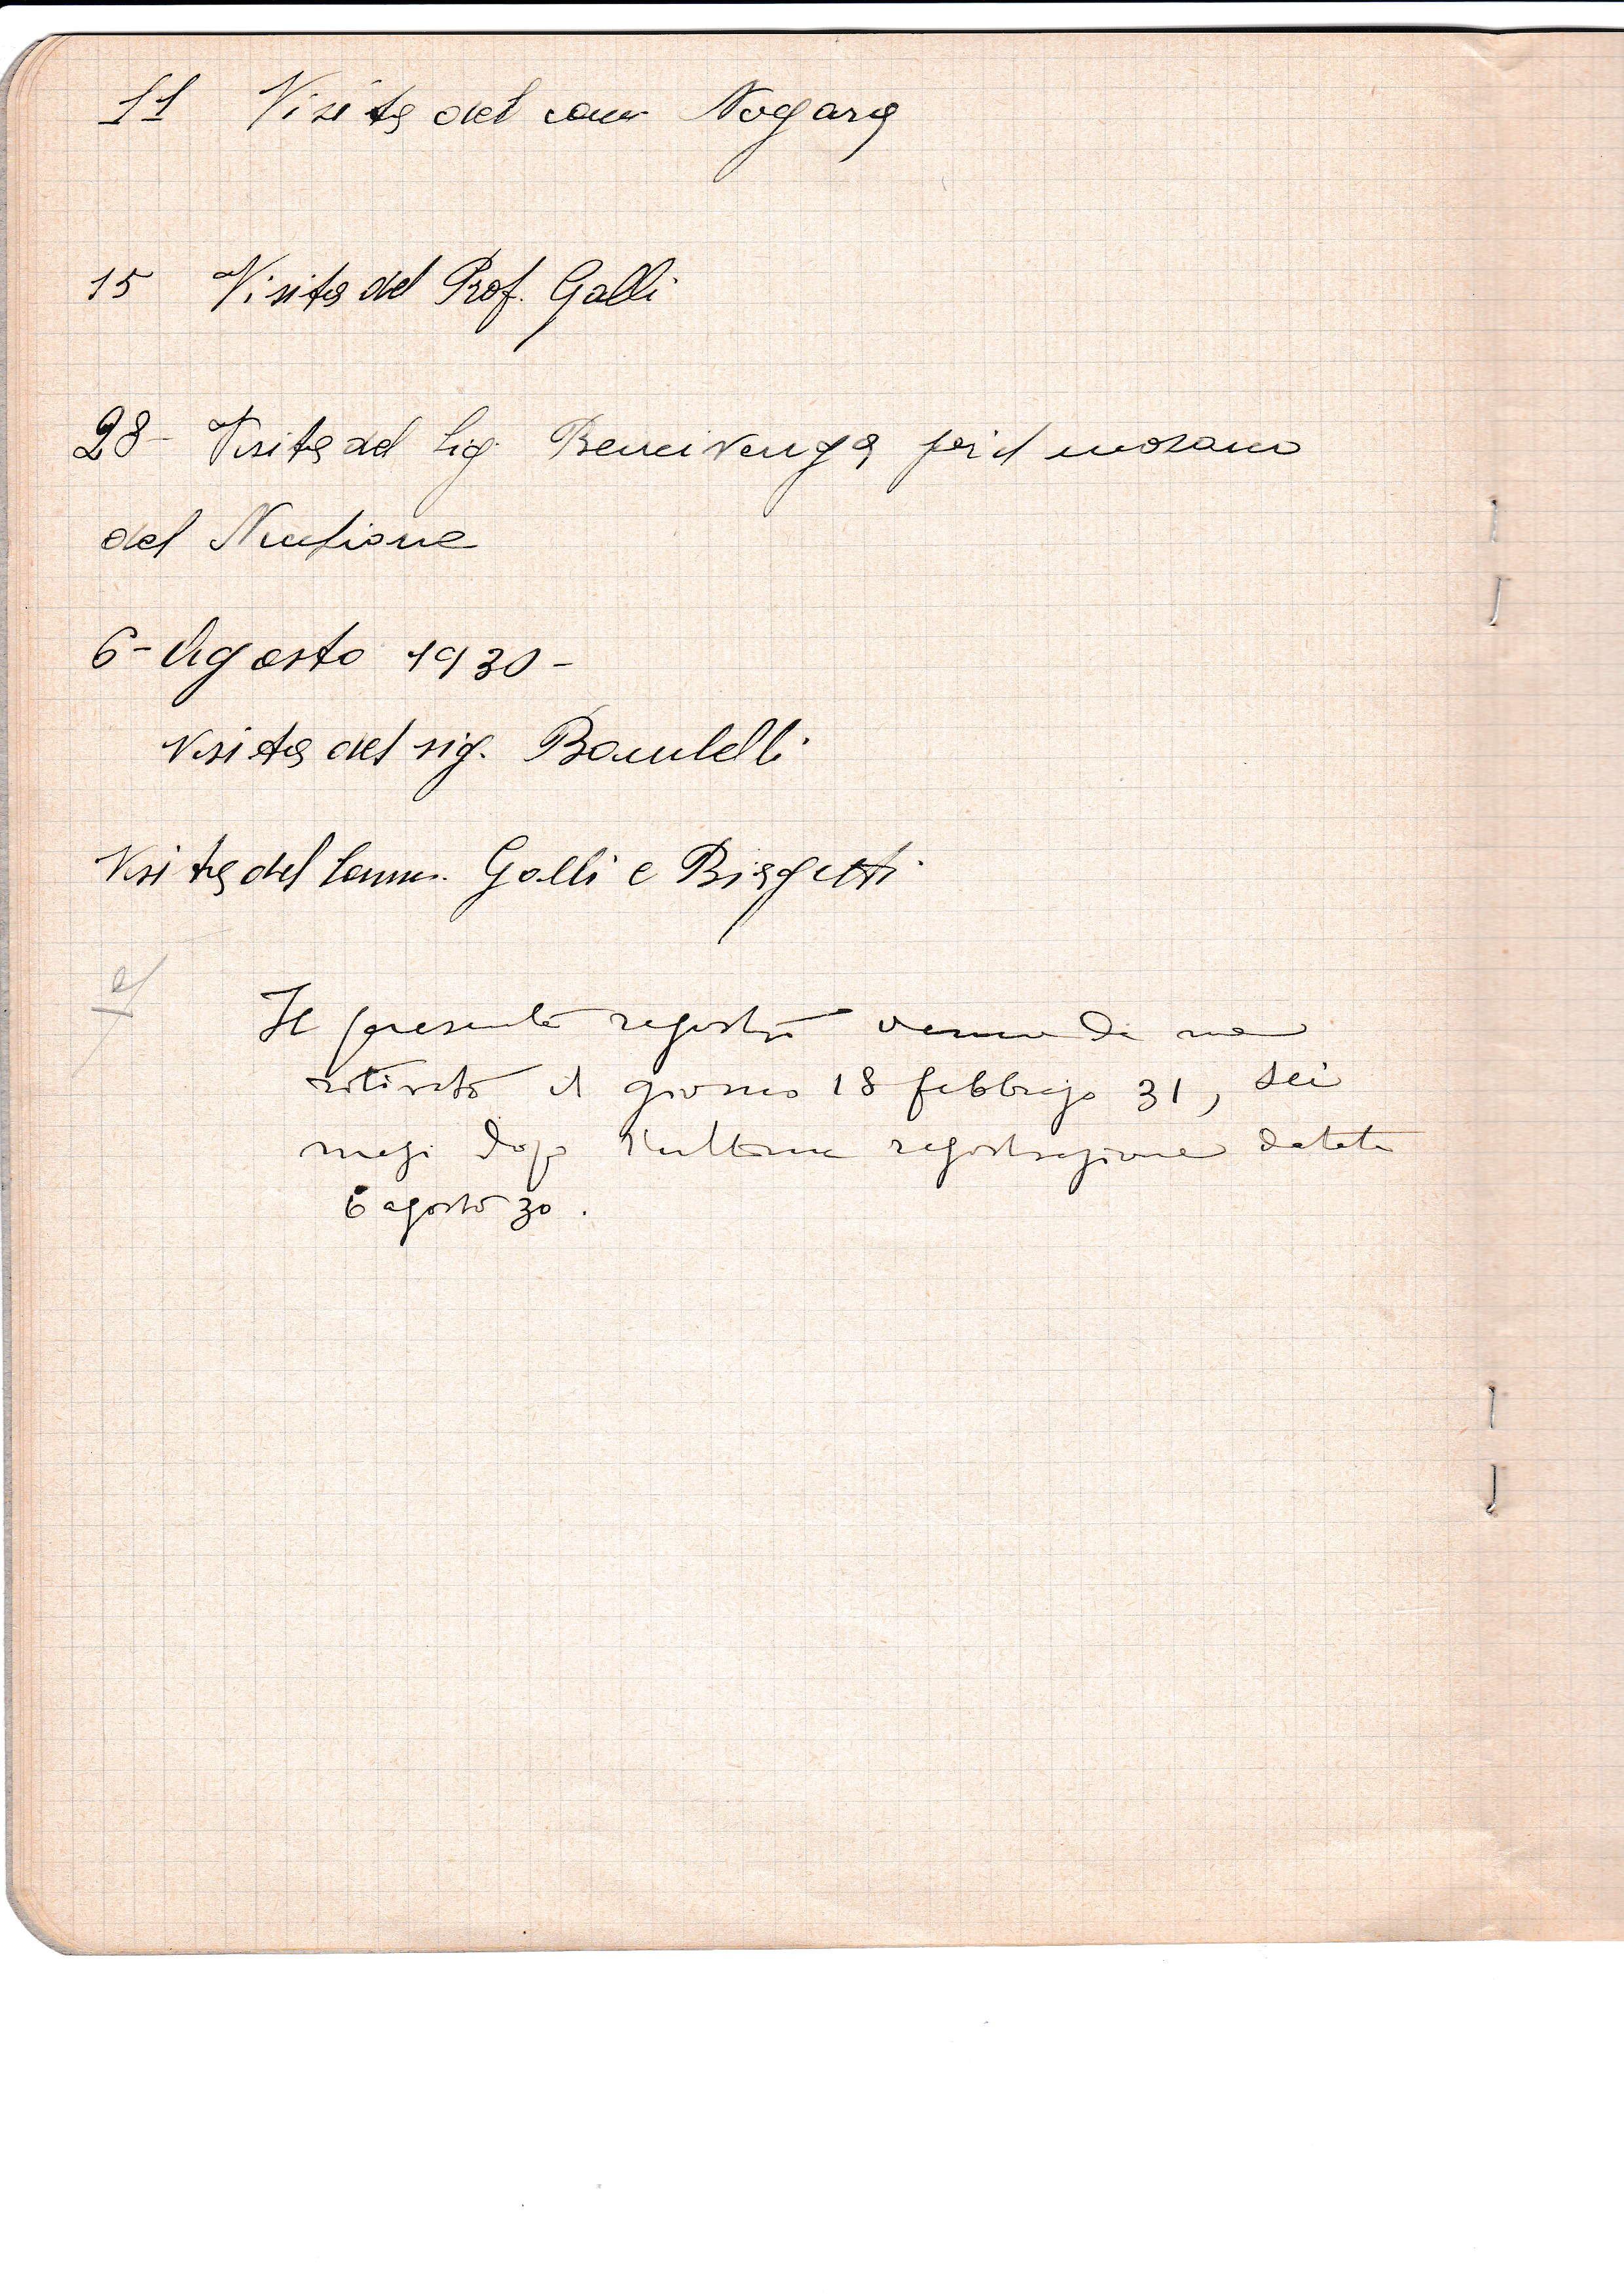 11 Visita del com Nogara
15 Visita del Prof. Galli
28- Visita del Sig. Bencivenga per il mosaico
del Nicchione
6- Agosto 1930-
Visita del sig. Bandelli
Visita del Comm. Galli e Biagetti
Il presente registro venne da me
ritirato il giorno 18 febbrajo 31, sei
mesi dopo l'ultima registrazione datata
6 agosto 30.